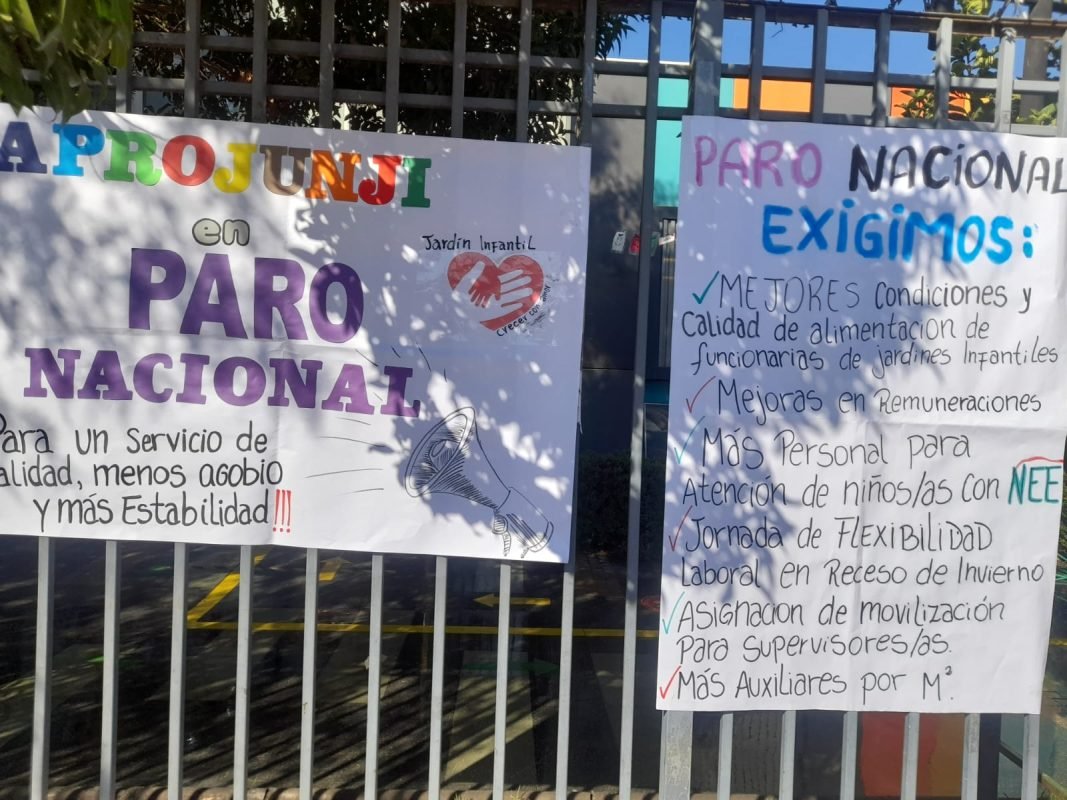 APROJUNJI
en
PARO
NACIONAL
Para un Servicio de
alidad, menos agobio
y más Estabilidad!!!
Jardín Infantil
crecer con amor
PARO NACIONAL
EXIGIMOS:
✓MEJORES Condiciones y
Calidad de alimentacion de
funcionarias de jardines Infantiles
✓ Mejoras en Remuneraciones
✓ Más Personal para
Atención de niños/as con NEE
✓Jornada de FLEXIBILIDAD
Laboral en Receso de Invierno
✓Asignacion de movilización
Para Supervisores/as.
✓Más Auxiliares por M².